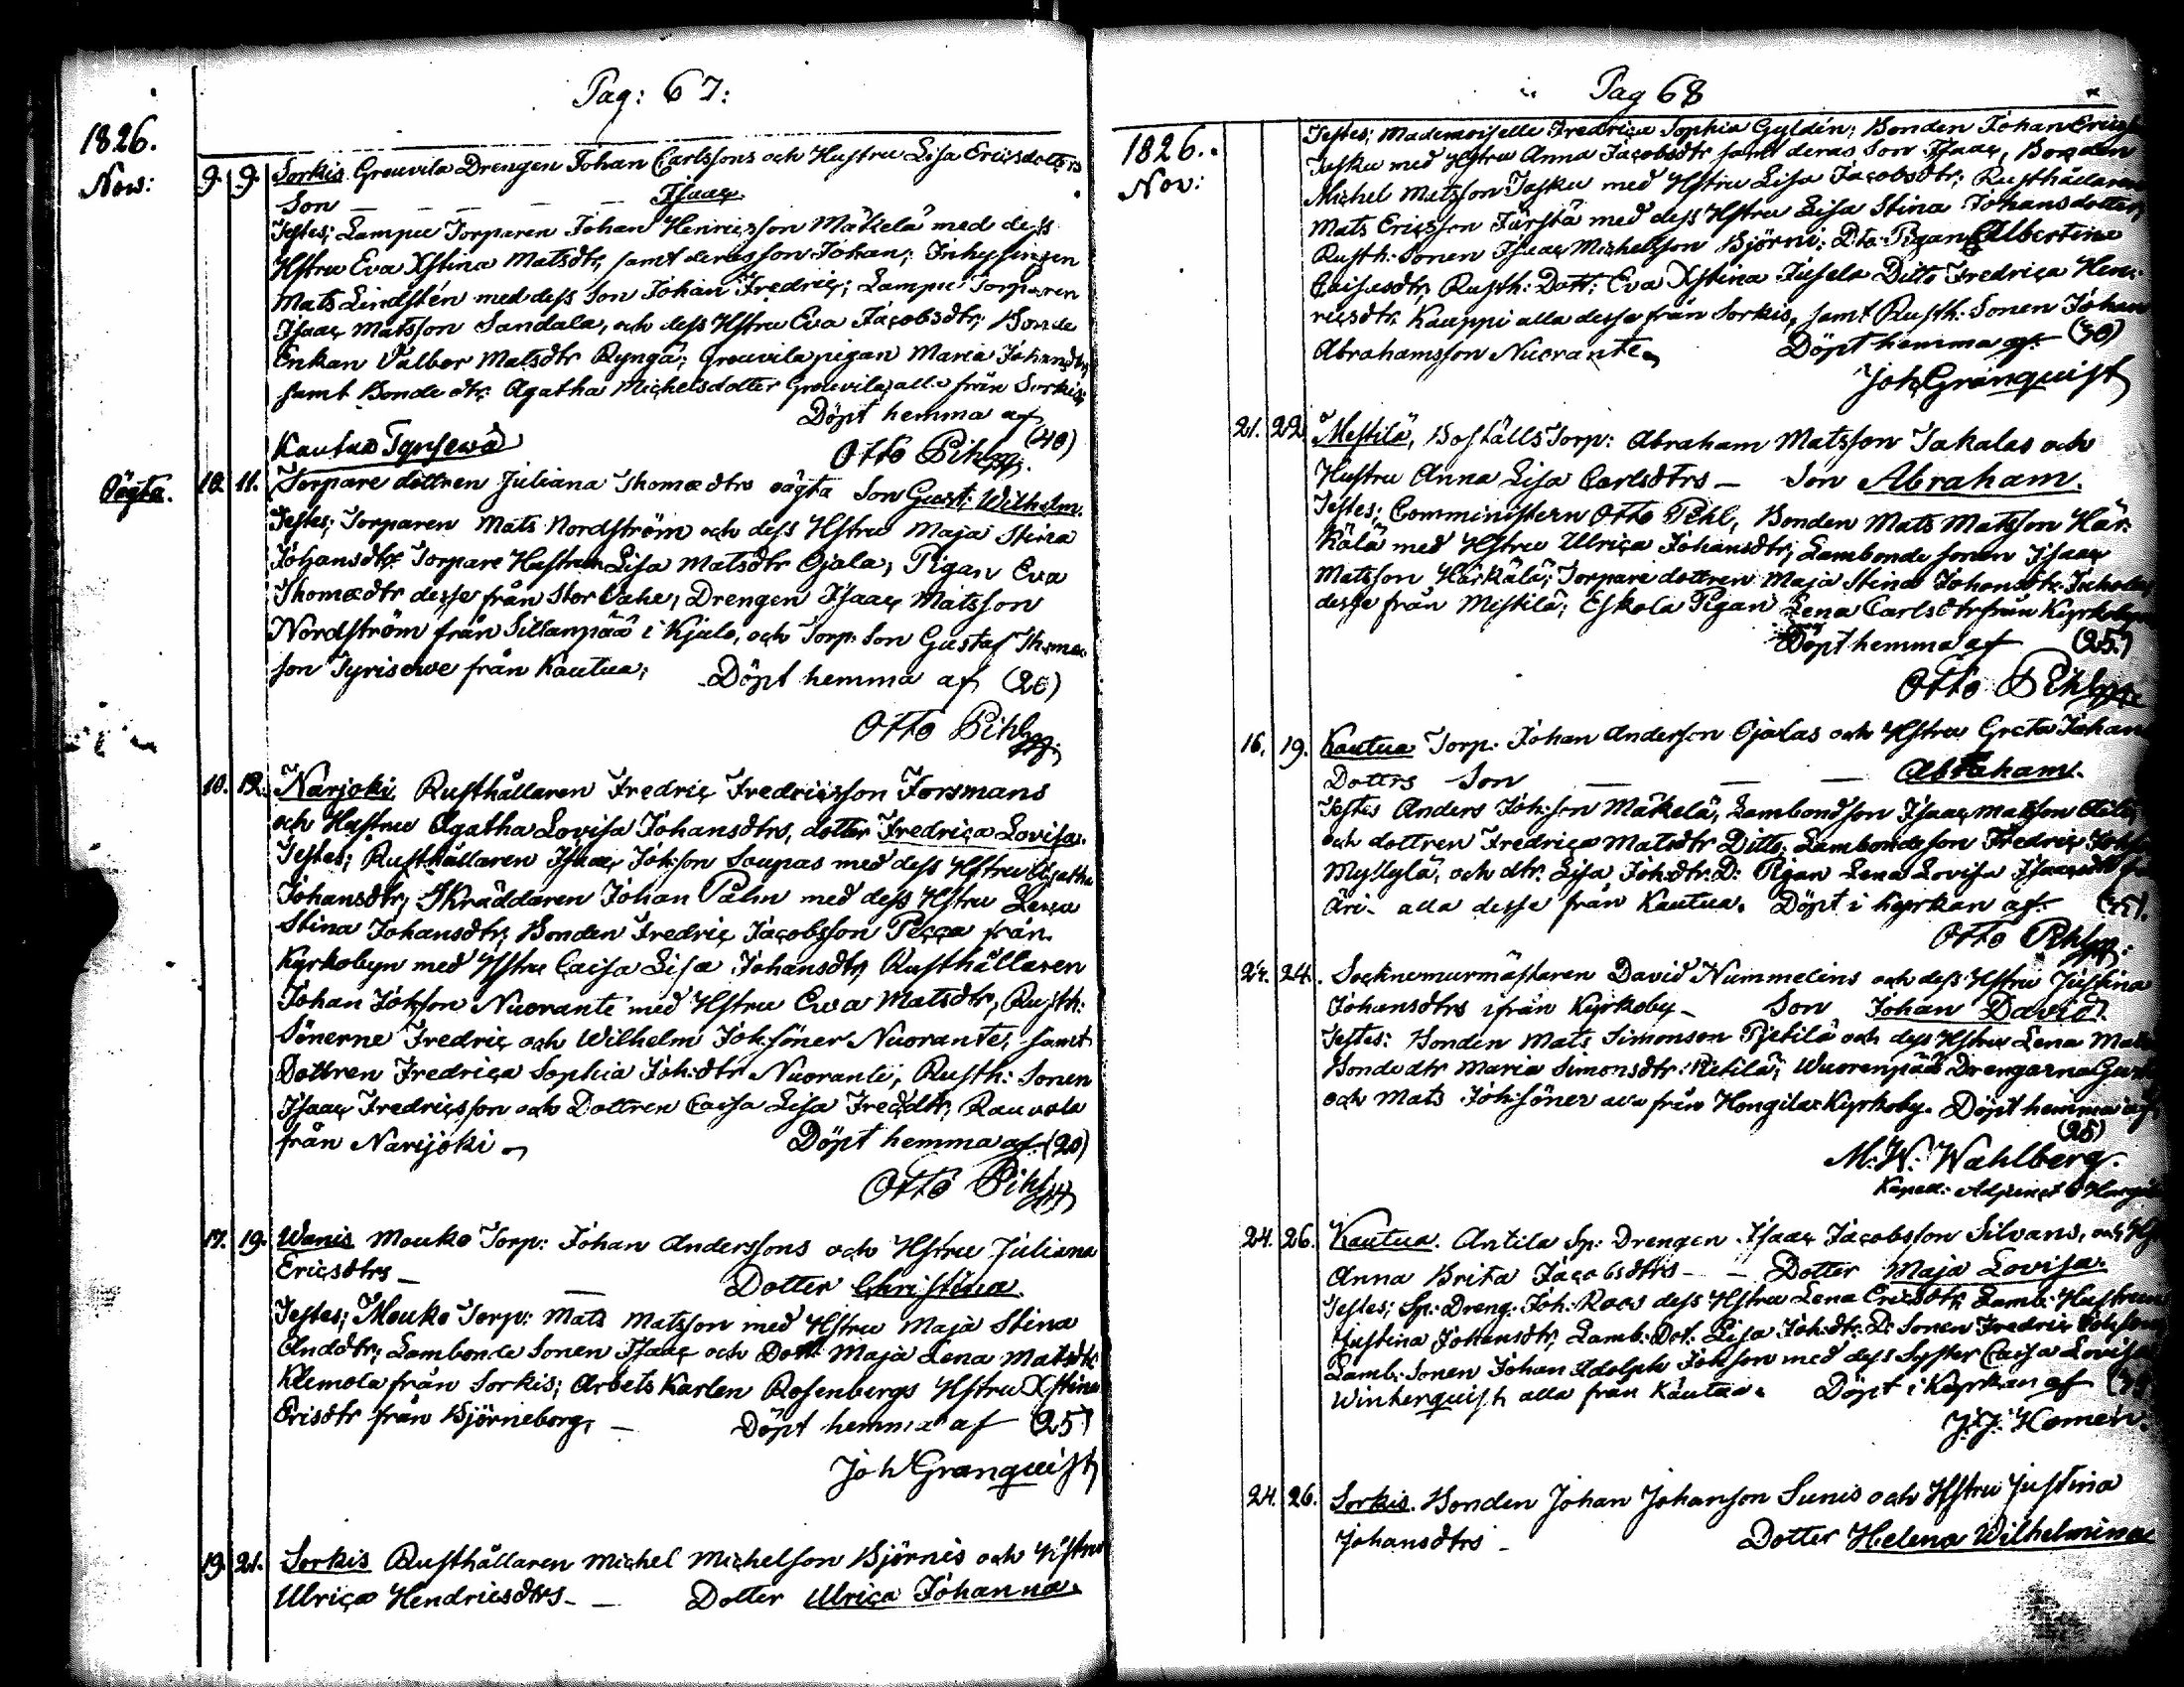 Pag: 67:
1826.
Nov:
9. 9. Sorkis Grouvila Drengen Johan Carlssons och Hustru Lisa Ericsdotters
Son — — — — — Isaac
Testes; Lampu Torparen Johan Henricsson Mäkelä med dess
Hstru Eva Xstina Matsdtr, samt deras son Johan; Inhysingen
Mats Lindstén med dess Son Johan Fredric; Lampu Torparen
Isaac Matsson Sandala, och dess Hstru Eva Jacobsdtr; Bonde
Enkan Valbor Matsdtr Ryngä; Grouvila pigan Maria Johansdtr
samt Bonde dtr. Agatha Michelsdotter Grouvila, alla från Sorkis;
Döpt hemma af
(40)
Otto Pihl
Kautua Tyrisewä
Oägta.
10. 11. Torpare dottren Juliana Thomædtrs oägta Son Gust: Wilhelm.
Testes; Torparen Mats Nordström och dess Hstru Maja Stina
Johansdtr Torpare Hustrun Lisa Matsdtr Ojala, Pigan Eva
Thomædtr desse från Stor Vahe, Drengen Isaac Matsson
Nordström från Sillanpää i Kjulo, och Torp. Son Gustaf Thomæ-
son Tyrisewe från Kautua; Döpt hemma af (20)
Otto Pihl
10. 12. Narjoki Rusthållaren Fredric Fredricsson Forsmans
och Hustru Agatha Lovisa Johansdtrs, dotter Fredrica Lovisa.
Testes; Rusthållaren Isaac Johsson Saupas med dess Hstru Agatha
Johansdtr; Skräddaren Johan Palm med dess Hstru Lena
Stina Johansdtr; Bonden Fredric Jacobsson Pecca från
Kyrkobyn med Hstru Caisa Lisa Johansdtr, Rusthållaren
Johan Johsson Nuorante med Hstru Ewa Matsdtr, Rusth:
Sönerne Fredric och Wilhelm Joh:söner Nuorante, samt
Dottren Fredrica Sophia Joh:dtr Nuorante, Rusth: Sonen
Isaac Fredricsson och Dottren Caisa Lisa Freddtr, Rauvola
från Narijoki Döpt hemma af (20)
Otto Pihl
17. 19. Wanis Mouko Torp: Johan Anderssons och Hstru Juliana
Ericsdtrs — — Dotter Christina.
Testes; Mouko Torp: Mats Matsson med Hstru Maja Stina
Anddtr; Lambonde Sonen Isaac och Dottr. Maja Lena Matsdtr
Klemola från Sorkis; Arbets Karlen Rosenbergs Hstru Xstina
Erisdtr från Björneborg, — Döpt hemma af (25)
Joh Granquist
19. 21. Sorkis Rusthållaren Michel Michelson Björnis och Hstru
Ulrica Hendricsdtrs — Dotter Ulrica Johanna.
Pag 68
1826.
Nov:
Testes; Mademoiselle Fredrica Sophia Gyldén; Bonden Johan Ericss
Jasku med Hstru Anna Jacobsdtr samt deras Son Isaac, Bonden
Michel Matsson Jasku med Hstru Lisa Jacobsdtr; Rusthållaren
Mats Ericsson Fürstä med dess Hstru Lisa Stina Johansdotter;
Rusth: Sonen Isaac Michelsson Björni; Dto: Pigan Albertina
Caisasdtr, Rusth: Dott: Eva Xstina Jusela Ditto Fredrica Hen-
ricsdtr Kauppi alla desse från Sorkis, samt Rusth: Sonen Johan
Abrahamsson Nuorante Döpt hemma af (30)
Joh Granquist
21. 22. Mestilä, Boställs Torp: Abraham Matsson Jakalas och
Hustru Anna Lisa Carlsdtrs — Son Abraham.
Testes; Comministern Otto Pihl, Bonden Mats Matsson Här-
kälä med Hstru Ulrica Johansdtr; Lambonde sonen Isaac
Matsson Härkälä; Torpare dottren Maja Stina Johansdtr Jakola
desse från Mestilä; Eskola Pigan Lena Carlsdtr från Kyrkobyn
Döpt hemma af (25)
Otto Pihl
16. 19. Kautua Torp. Johan Anderson Ojalas och Hstru Greta Johan
Dotters Son — — — Abraham.
Testes Anders Joh:son Mäkelä, Lambondson Isaac Matsson
och dottren Fredrica Matsdtr Ditto; Lambondeson Fredric
Myllylä, och dtr. Lisa Joh:dtr. D: Pigan Lena Lovisa Isaacsdtr
Äri- alla desse från Kautua. Döpt i Kyrkan af
Otto Pihl
24. 24. Socknemurmästaren David Nummelins och dess Hstru Justina
Johansdtrs ifrån Kyrkoby — Son Johan David.
Testes: Bonden Mats Simonson Pietilä och dess Hstru Lena
Bondedtr Maria Simonsdtr Pietilä; Wuorenpää Drengarna
och Mats Joh:söner från Hongila Kyrkoby. Döpt hemma af
(25)
M. W: Wahlberg.
Kapell: Adjunct i
24. 26. Kautua. Antila Sp: Drengen Isaac Jacobsson Silvans, och
Anna Brita Jacobsdtrs — — Dotter Maja Lovisa.
Testes; Sp: Dreng. Joh. Roos dess Hstru Lena Ericsdtr; Lamb: Hustrun
Justina Johansdtr, Lamb: Dot. Lisa Joh:dtr. D: Sonen Fredric Johsson
Lamb: Sonen Johan Adolph Johson med dess Syster Caisa Lovisa
Winterquist, alla från Kautua. Döpt i Kyrkan af
J: J: Homén.
24. 26. Sorkis. Bonden Johan Johanson Sunis och Hstru Justina
Johansdtrs — Dotter Helena Wilhelmina